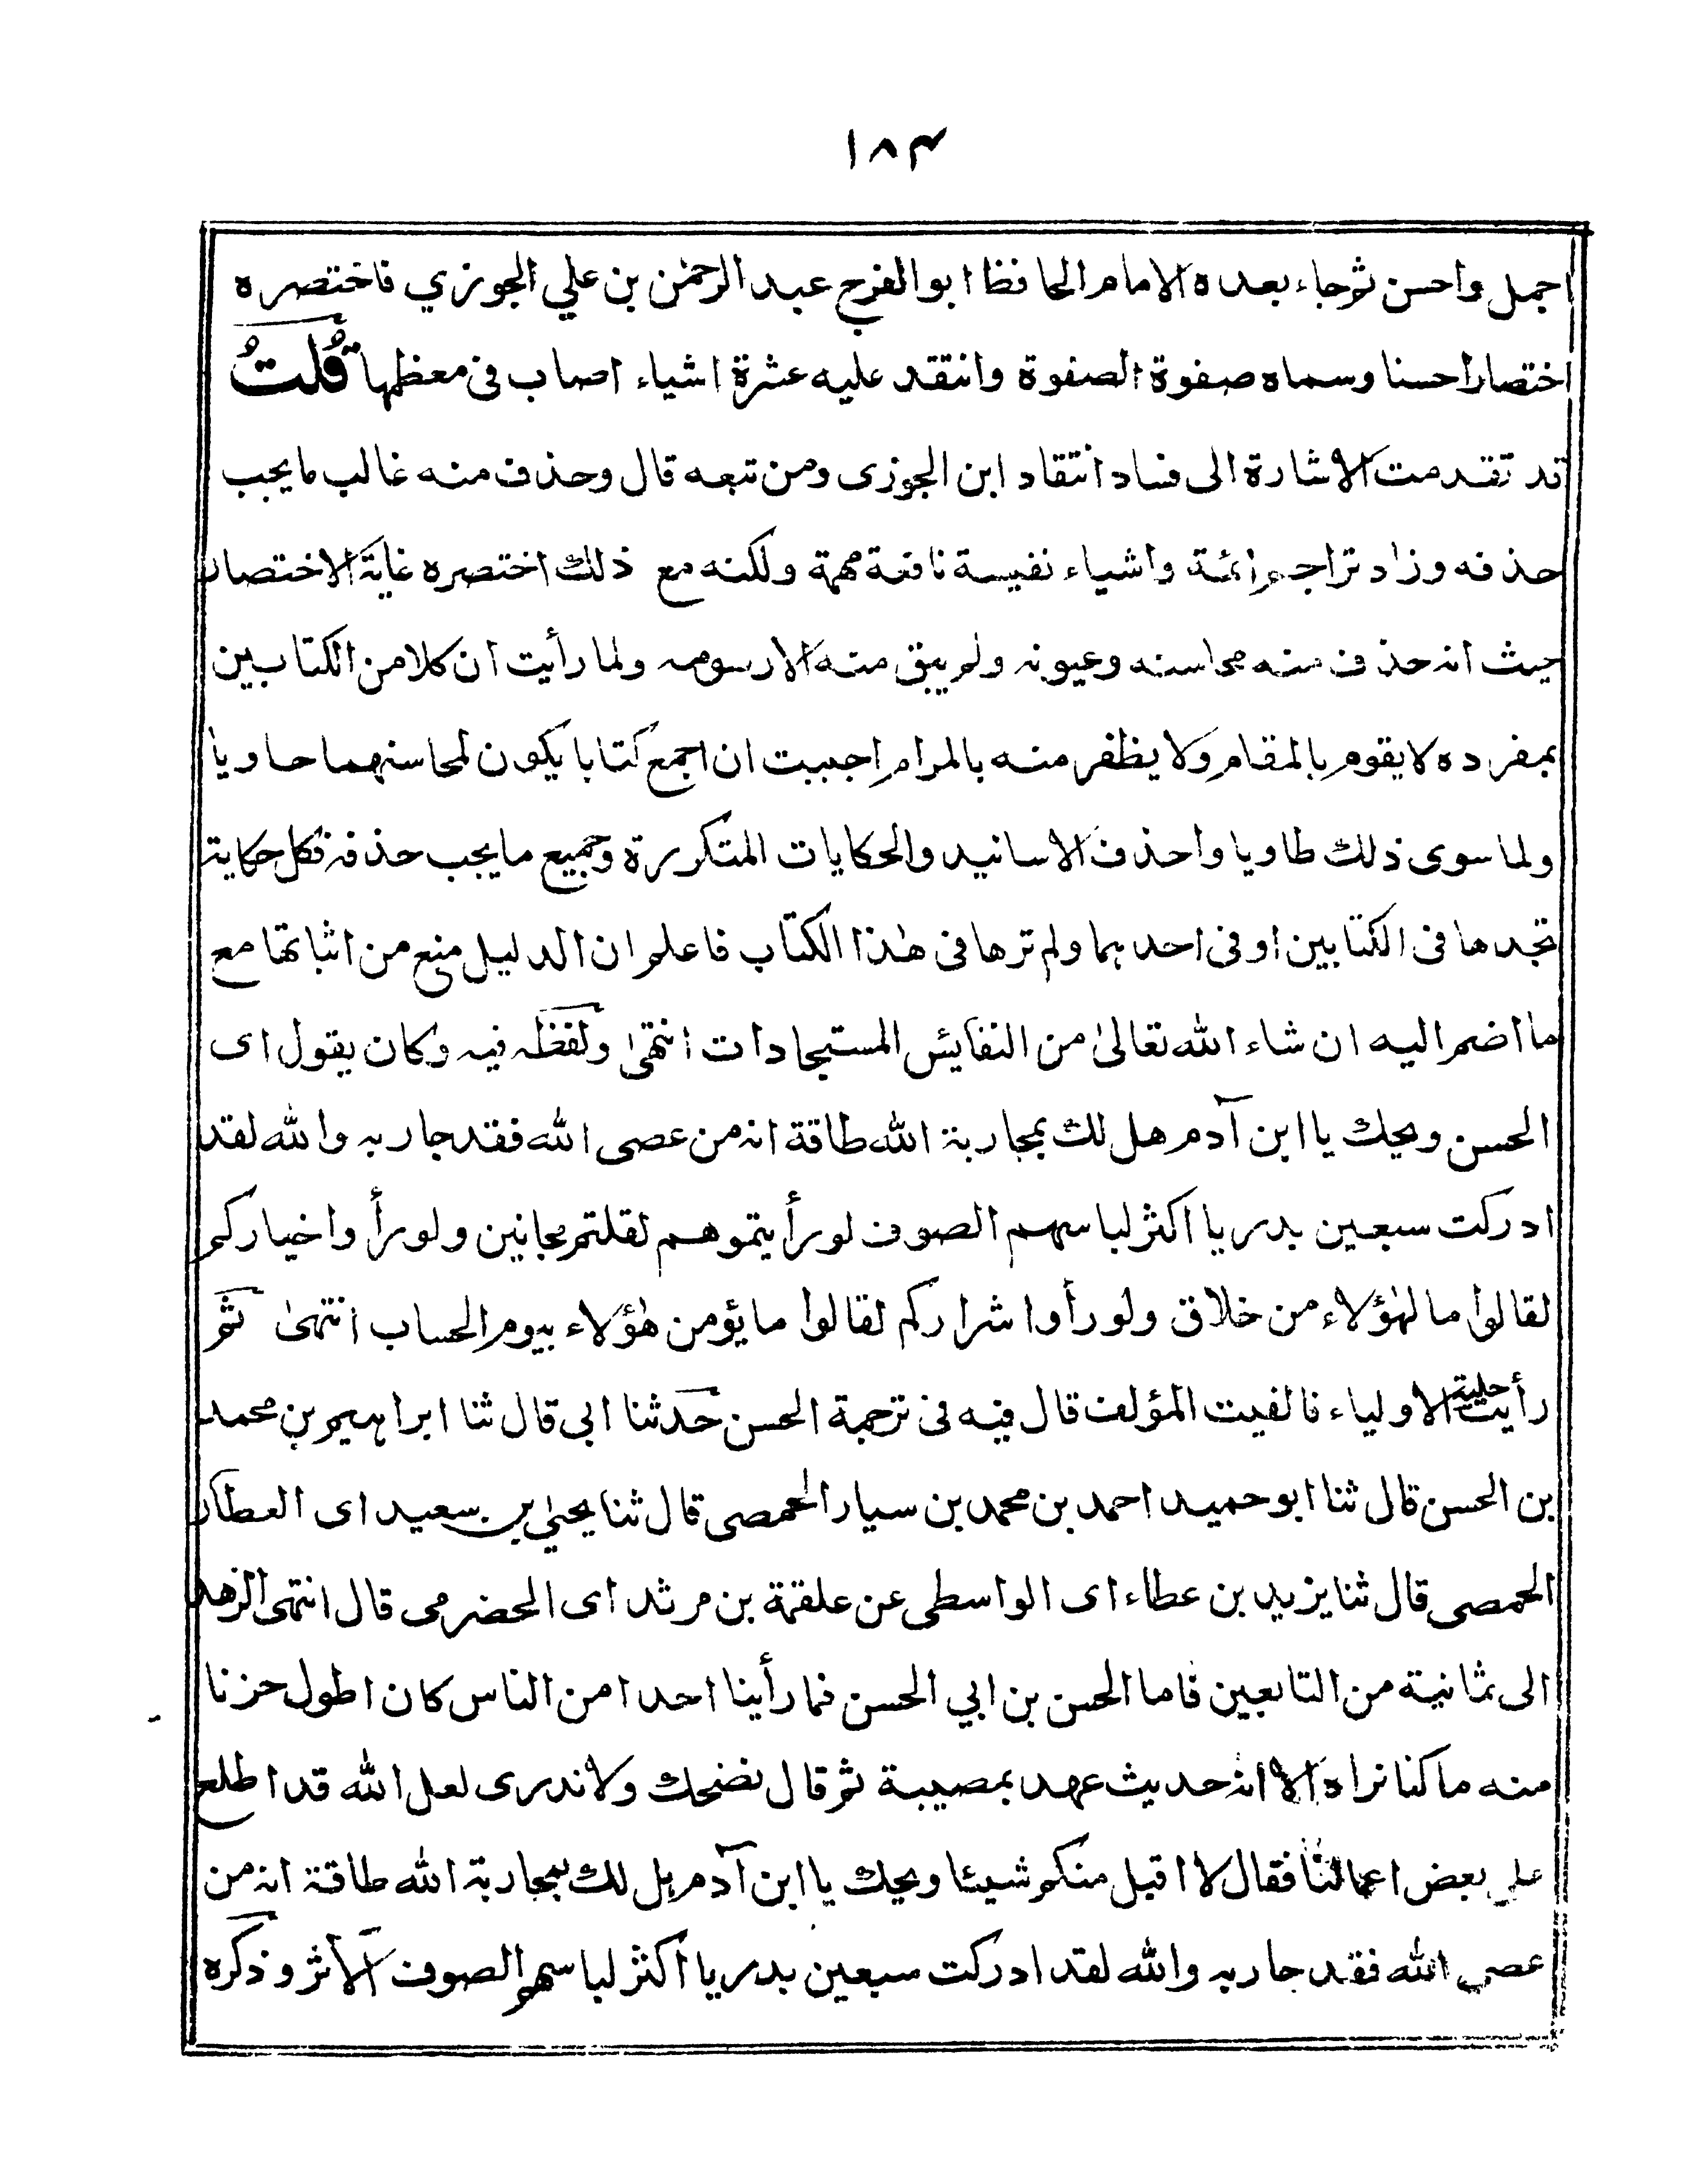 ١٨٣
اجمل واحسن ثم جاء بعده الامام الحافظ ابو الفرج عبد الرحمٰن بن علي الجوزي فاختصره
اختصارا حسنا وسماه صفوة الصفوة وانتقد عليه عشرة اشياء اصاب فى معظمها قُلتُ
قد تقدمت الاشارة الى فساد انتقاد ابن الجوزى ومن تبعه قال وحذف منه غالب ما يجب
حذفه وزاد تراجم ائمة واشياء نفيسة نافعة مهمة ولكنه مع ذلك اختصره غاية الاختصار
حيث انه حذف منه محاسنه وعيونه ولم يبق منه الا رسومه ولما رأيت ان كلا من الكتابين
بمفرده لا يقوم بالمقام ولا يظفر منه بالمرام احببت ان اجمع كتابا يكون لمحاسنهما حاويا
ولما سوى ذلك طاويا واحذف الاسانيد والحكايات المتكررة وجميع ما يجب حذفه فكل حكاية
تجدها فى الكتابين او فى احدهما ولم ترها فى هٰذا الكتاب فاعلم ان الدليل منع من اثباتها مع
ما اضم اليه ان شاء الله تعالىٰ من النفايس المستجادات انتهىٰ ولفظه فيه وكان يقول اى
الحسن ويحك يا ابن آدم هل لك بمحاربة الله طاقة انه من عصى الله فقد حاربه والله لقد
ادركت سبعين بدريا اكثر لباسهم الصوف لو رأيتموهم لقلتم مجانين ولو رأوا خياركم
لقالوا ما لهٰؤلاء من خلاق ولو رأوا شراركم لقالوا ما يؤمن هٰؤلاء بيوم الحساب انتهىٰ ثم
رأيت حلية الاولياء فالفيت المؤلف قال فيه فى ترجمة الحسن حدثنا ابى قال ثنا ابراهيم بن محمد
بن الحسن قال ثنا ابو حميد احمد بن محمد بن سيار الحمصى قال ثنا يحيىٰ بن سعيد اى العطار
الحمصى قال ثنا يزيد بن عطاء اى الواسطى عن علقمة بن مرثد اى الحضرمى قال انتهى الزهد
الى ثمانية من التابعين فاما الحسن بن ابي الحسن فما رأينا احدا من الناس كان اطول حزنا
منه ما كنا نراه الا انه حديث عهد بمصيبة ثم قال نضحك ولا ندرى لعل الله قد اطلع
على بعض اعمالنا فقال لا اقبل منكم شيئا ويحك يا ابن آدم هل لك بمحاربة الله طاقة انه من
عصى الله فقد حاربه والله لقد ادركت سبعين بدريا اكثر لباسهم الصوف الأثر وذكره